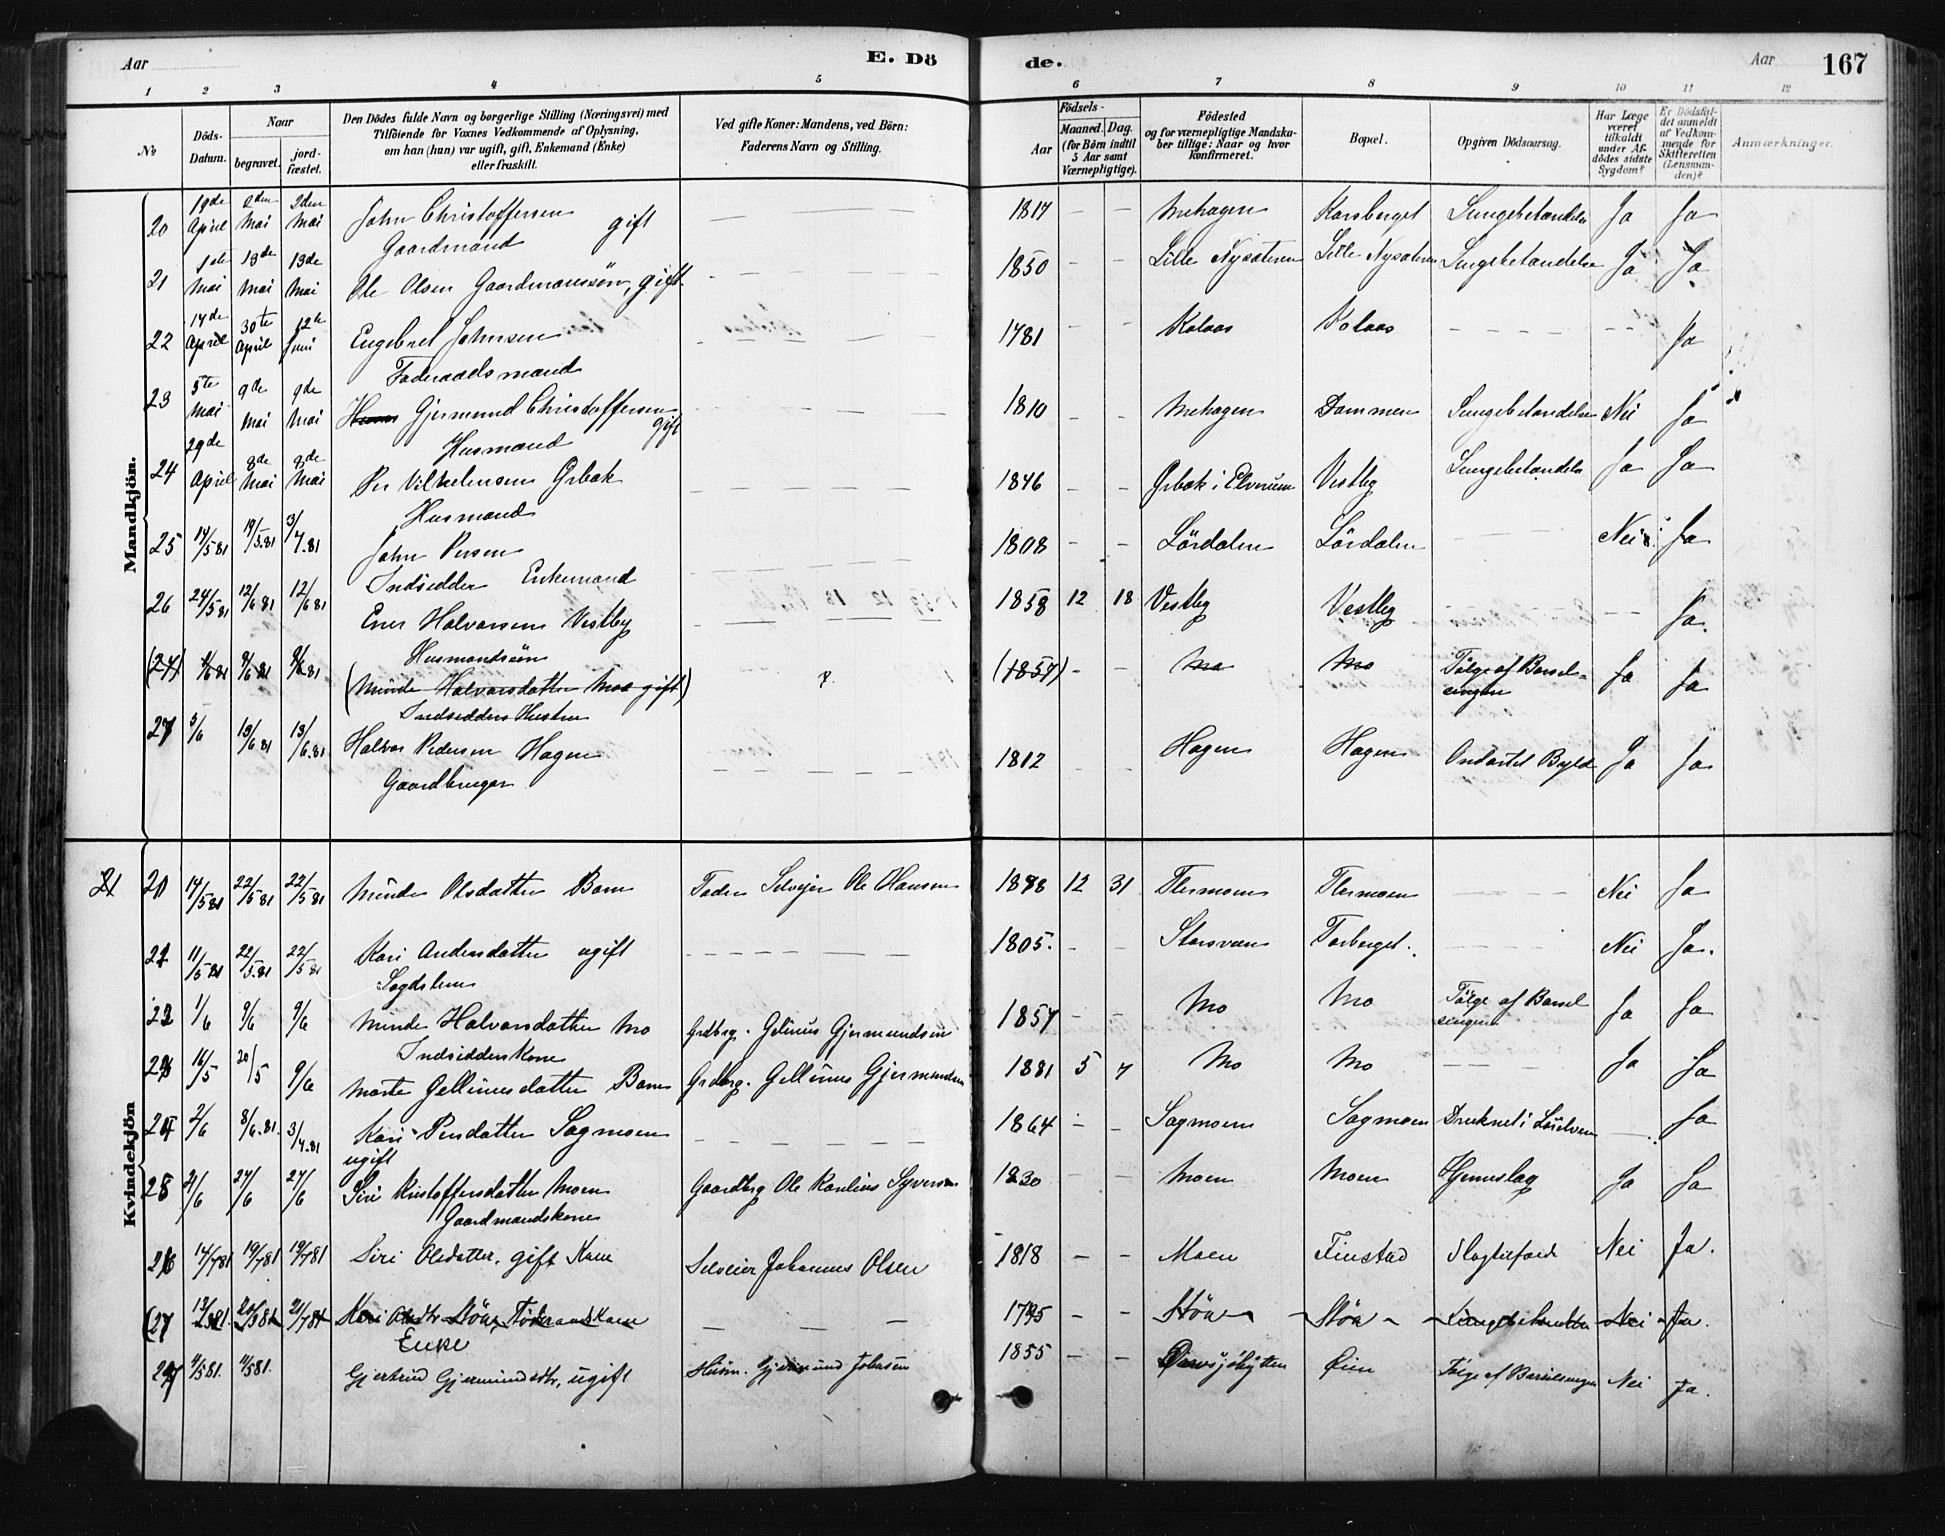 Aar
E. Dö
de.
Aar
167
1 2 3 4 5 6 7 8 9 10 11 12
No
Döds-
Datum.
Naar
begravet.
jord-
fæstet.
Den Dödes fulde Navn og borgerlige Stilling (Næringsvei) med
Tilföiende for Voxnes Vedkommende af Oplysning,
om han (hun) var ugift, gift, Enkemand (Enke)
eller fraskilt.
Ved gifte Koner: Mandens, ved Börn:
Faderens Navn og Stilling.
Födsels-
Aar
Maaned.
Dag.
(for Börn indtil
5 Aar samt
Værnepligtige).
Födested
og for værnepligtige Mandska-
ber tillige: Naar og hvor
konfirmeret.
Bopæl.
Opgiven Dödsaarsag.
Har Læge
været
tilkaldt
under Af-
dödes sidste
Sygdom?
Er Dödsfal-
det anmeldt
af Vedkom-
mende for
Skifteretten
(Lensman-
den)?
Anmærkninger.
Mandkjön.
20 April Mai 2den Mai John Christoffersen gift 1817 – – Mehagen Karsberget Lungebetændelse Ja Ja
Gaardmand
21 1ste Mai 13de Mai 13de Mai Ole Olsen Gaardmanssön, gift 1850 – – Lille Nysæteren Lille Nysæteren Lungebetændelse Ja Ja
22 17de April 30te April 12te Juni Engebret Johnsen 1781 – – Kolaas Kolaas – – Ja
Föderaadsmand
23 5te Mai 9de Mai 9de Mai Gjermund Christoffersen gift 1810 – – Mehagen Dammen Lungebetændelse Nei Ja
Husmand
24 29de April 8de Mai 8de Mai Per Vilhelmsen Grbæk 1846 – – Grbæk i Elverum Vestby Lungebetændelse Ja Ja
Husmand
25 14/5 81 19/5.81 3/7.81 John Persen 1808 – – Lördalen Lördalen – Nei Ja
Indsidder Enkemand
26 24/5 81 12/6 81 12/6 81 Ener Halvorsen Vestby 1858 12 18 Vestby Vestby – – Ja.
Husmandssön
(27) 1/6 81 9/6 81 9/6 81 (Minde Halvorsdatter Moe gift) (1857) – – Mo Mo Fölge af Barsel-
sengen Ja Ja
Indsidders Hustru
27 5/6 13/6 81 13/6.81 Halvor Pedersen Hagen 1812 – – Hagen Hagen Ondartet Byld Ja Ja
Gaardbruger
Kvindekjön
21 20 14/5 81 22/5 81 22/5 81 Minde Olsdatter Barn Fader Selveier Ole Hansen 1878 12 31 Flermoen Flermoen – Nei Ja
21 11/5 81 22/5.81 22/5 81 Kari Andersdatter ugift 1805. – – Storsveen Torberget. – Nei Ja.
Lægdslem
22 1/6 9/6 9/6 Minde Halvorsdatter Mo Grdbrg. Gelinus Gjermundsen 1857 – – Mo Mo Fölge af Barsel
sengen Ja Ja
Indsidderskone
23 16/5 20/5 9/6 Marte Gellinesdatter Barn Grdbrg. Gellinus Gjermundsen 1881 5 7 Mo Mo – Ja Ja
24 2/6 8/6.81. 3/7.81 Kari Persdatter Sagmoen 1864 – – Sagmoen Sagmoen Druknet i Lörelven – Ja
ugift
25 21/6 27/6 27/6 Siri Kristoffersdatter Moen Gaardbrg Ole Karelius Syversen 1830 – – Moen Moen Hjerneslag Ja Ja
Gaardmandskone
26 14/7 81 19/7 81 19/7 81 Siri Olsdatter, gift Kone Selveier Johannes Olsen 1818 – – Moen Finstad Slagtilfælde Nei Ja.
(27 21/7 81 Kari Olsdtr Stöa, Föderaadskone 1795 – – Stöa Stöa Lungebetændelse Nei Ja.
Enke
27 11/5 81. 11/5 81. Gjertrud Gjermundsdtr, ugift Husm. Gjermund Johnsen 1855 – – Öien Fölge af Barselsengen Nei Ja.